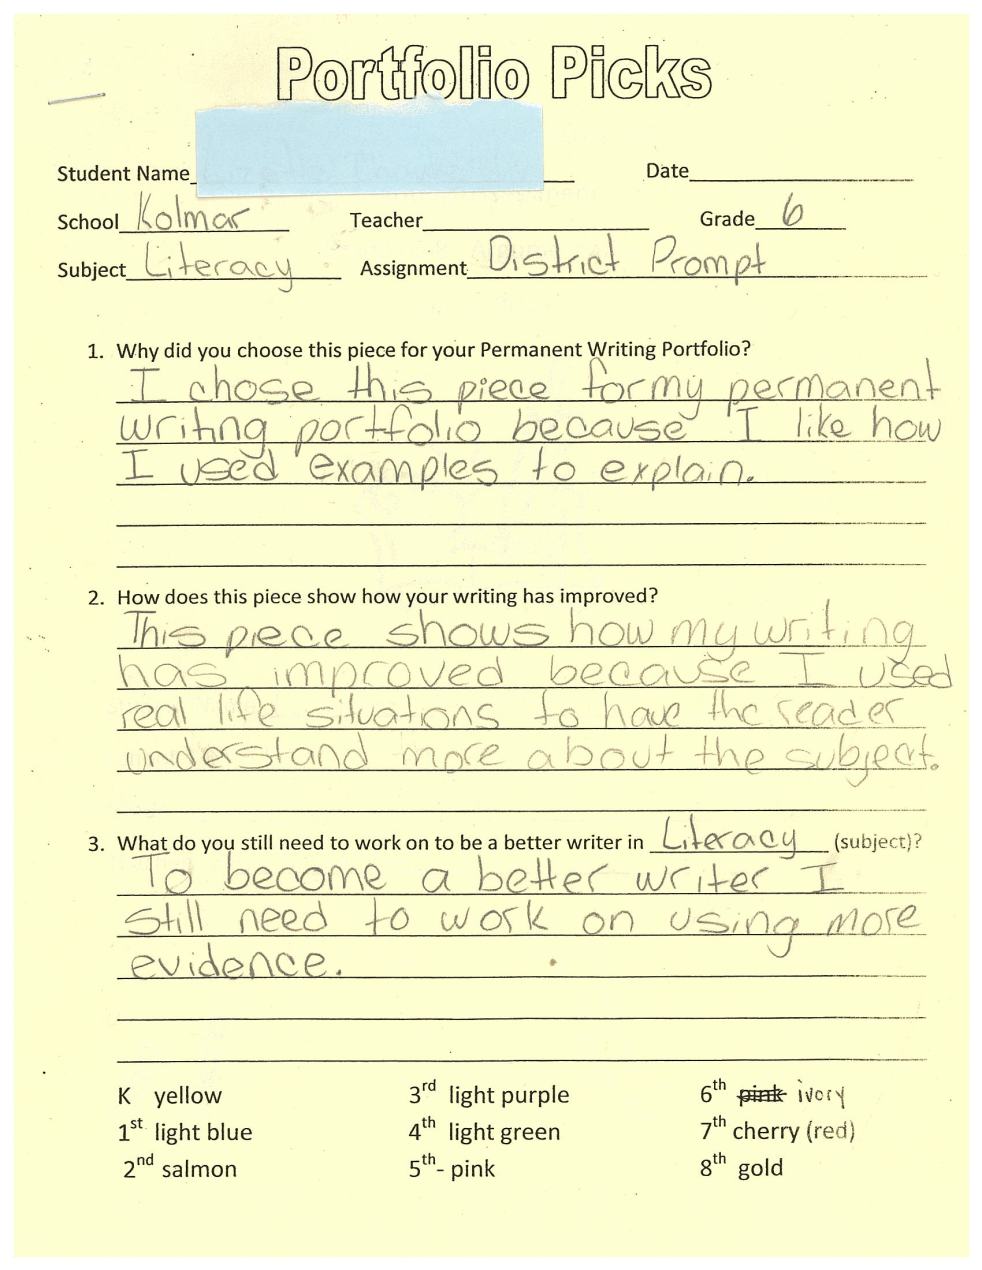 Portfolio Picks
Student Name Date
School Kolmar Teacher Grade 6
Subject Literacy Assignment District Prompt
1. Why did you choose this piece for your Permanent Writing Portfolio?
I chose this piece for my permanent
writing portfolio because I like how
I used examples to explain.
2. How does this piece show how your writing has improved?
This piece shows how my writing
has improved because I used
real life situations to have the reader
understand more about the subject.
3. What do you still need to work on to be a better writer in Literacy (subject)?
To become a better writer I
still need to work on using more
evidence.
K yellow 3rd light purple 6th pink ivory
1st light blue 4th light green 7th cherry (red)
2nd salmon 5th- pink 8th gold